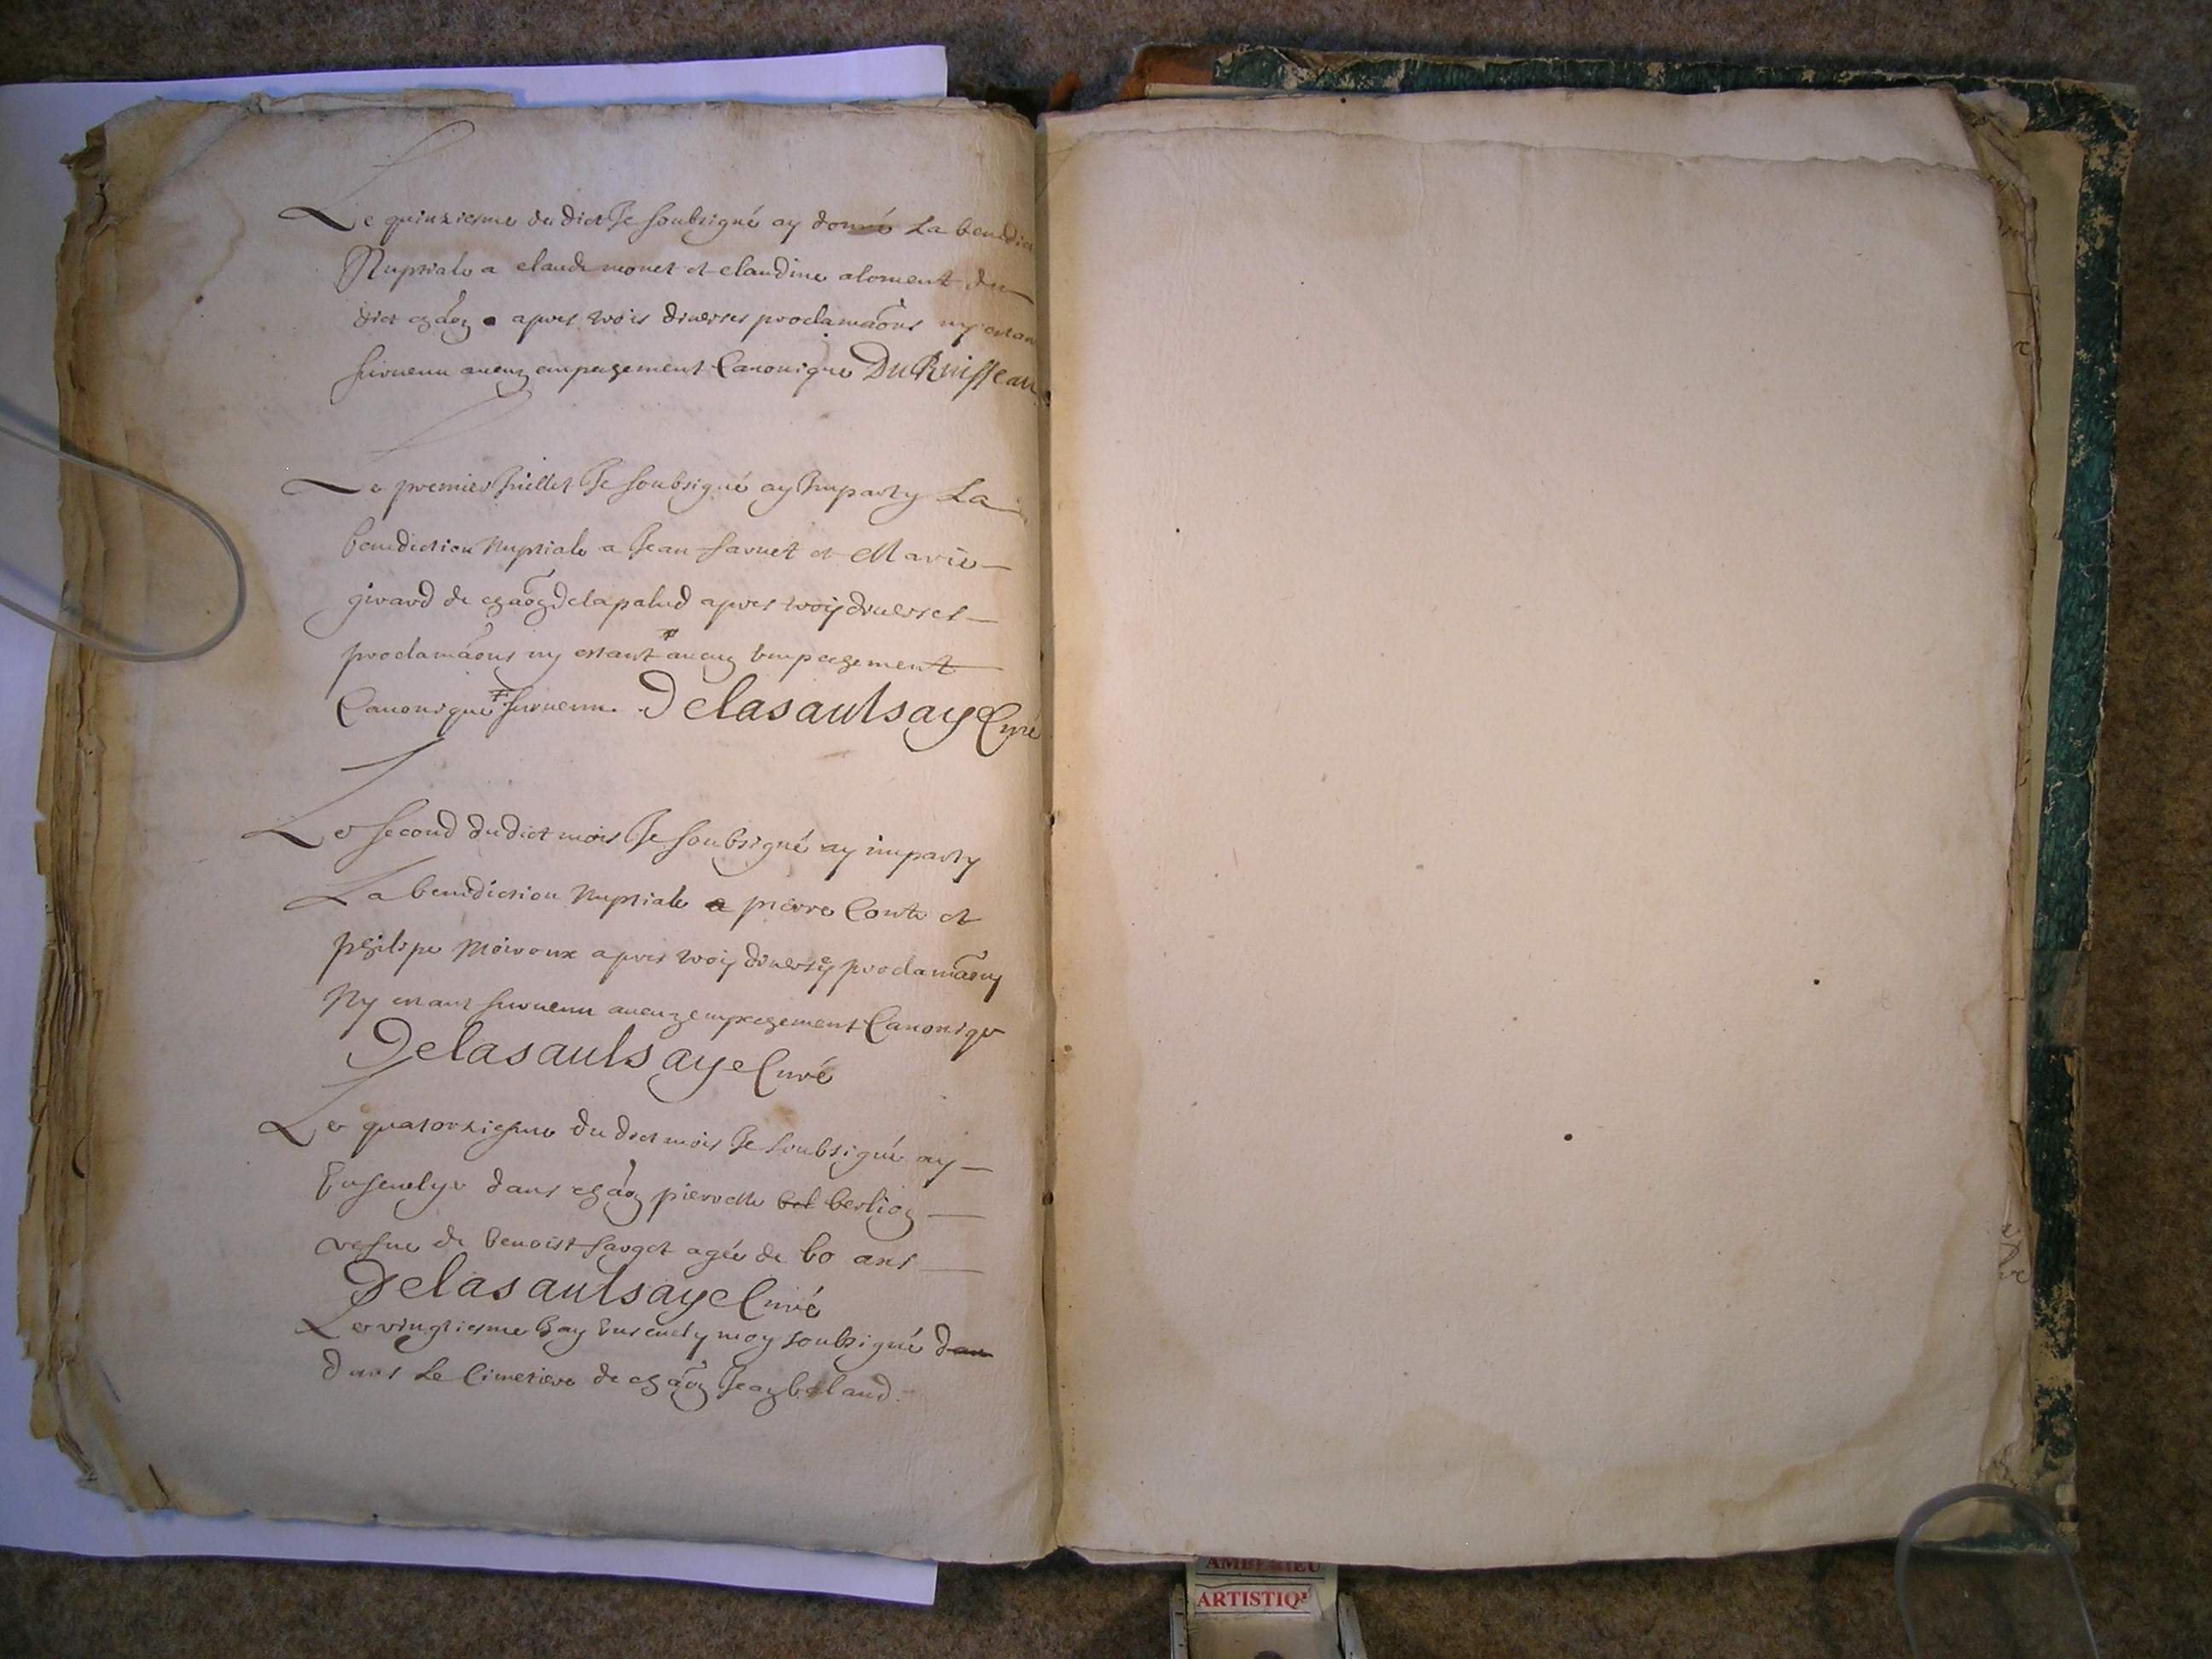 Le quinziesme du dict Je soubsigné ay donné La benedict
Nuptiale a claude monet et claudine aloment du
dict chãon apres trois diuerses proclamaõns ny estan
suruenu aucun empeschement Canonique DuRuisseau
Le premier Juillet Je soubsigné ay Imparty La
benediction Nuptiale a Jean sauuet et Marie
girard de chãon de la palud apres trois diuerses
proclamaõns ny estant aucun Empeschement
Canonique suruenu. Delasaulsaye Curé
Le second du dict mois Je soubsigné ay imparty
La benediction Nuptiale a pierre Conte et
philipe Moiroux apres trois diuerses proclamaõns
Ny estant suruenu aucun empeschement Canonique
Delasaulsaye Curé
Le quatorziesme du dict mois Je soubsigné ay
Enseuely dans chãon pierrette bel berlion
vefue de benoist sauget agée de 60 ans
Delasaulsaye Curé
Le vingtiesme Jay Enseuely moy soubsigné dan
dans Le Cimetiere de chãon Jean baland.
AMBERIEU
ARTISTIQ